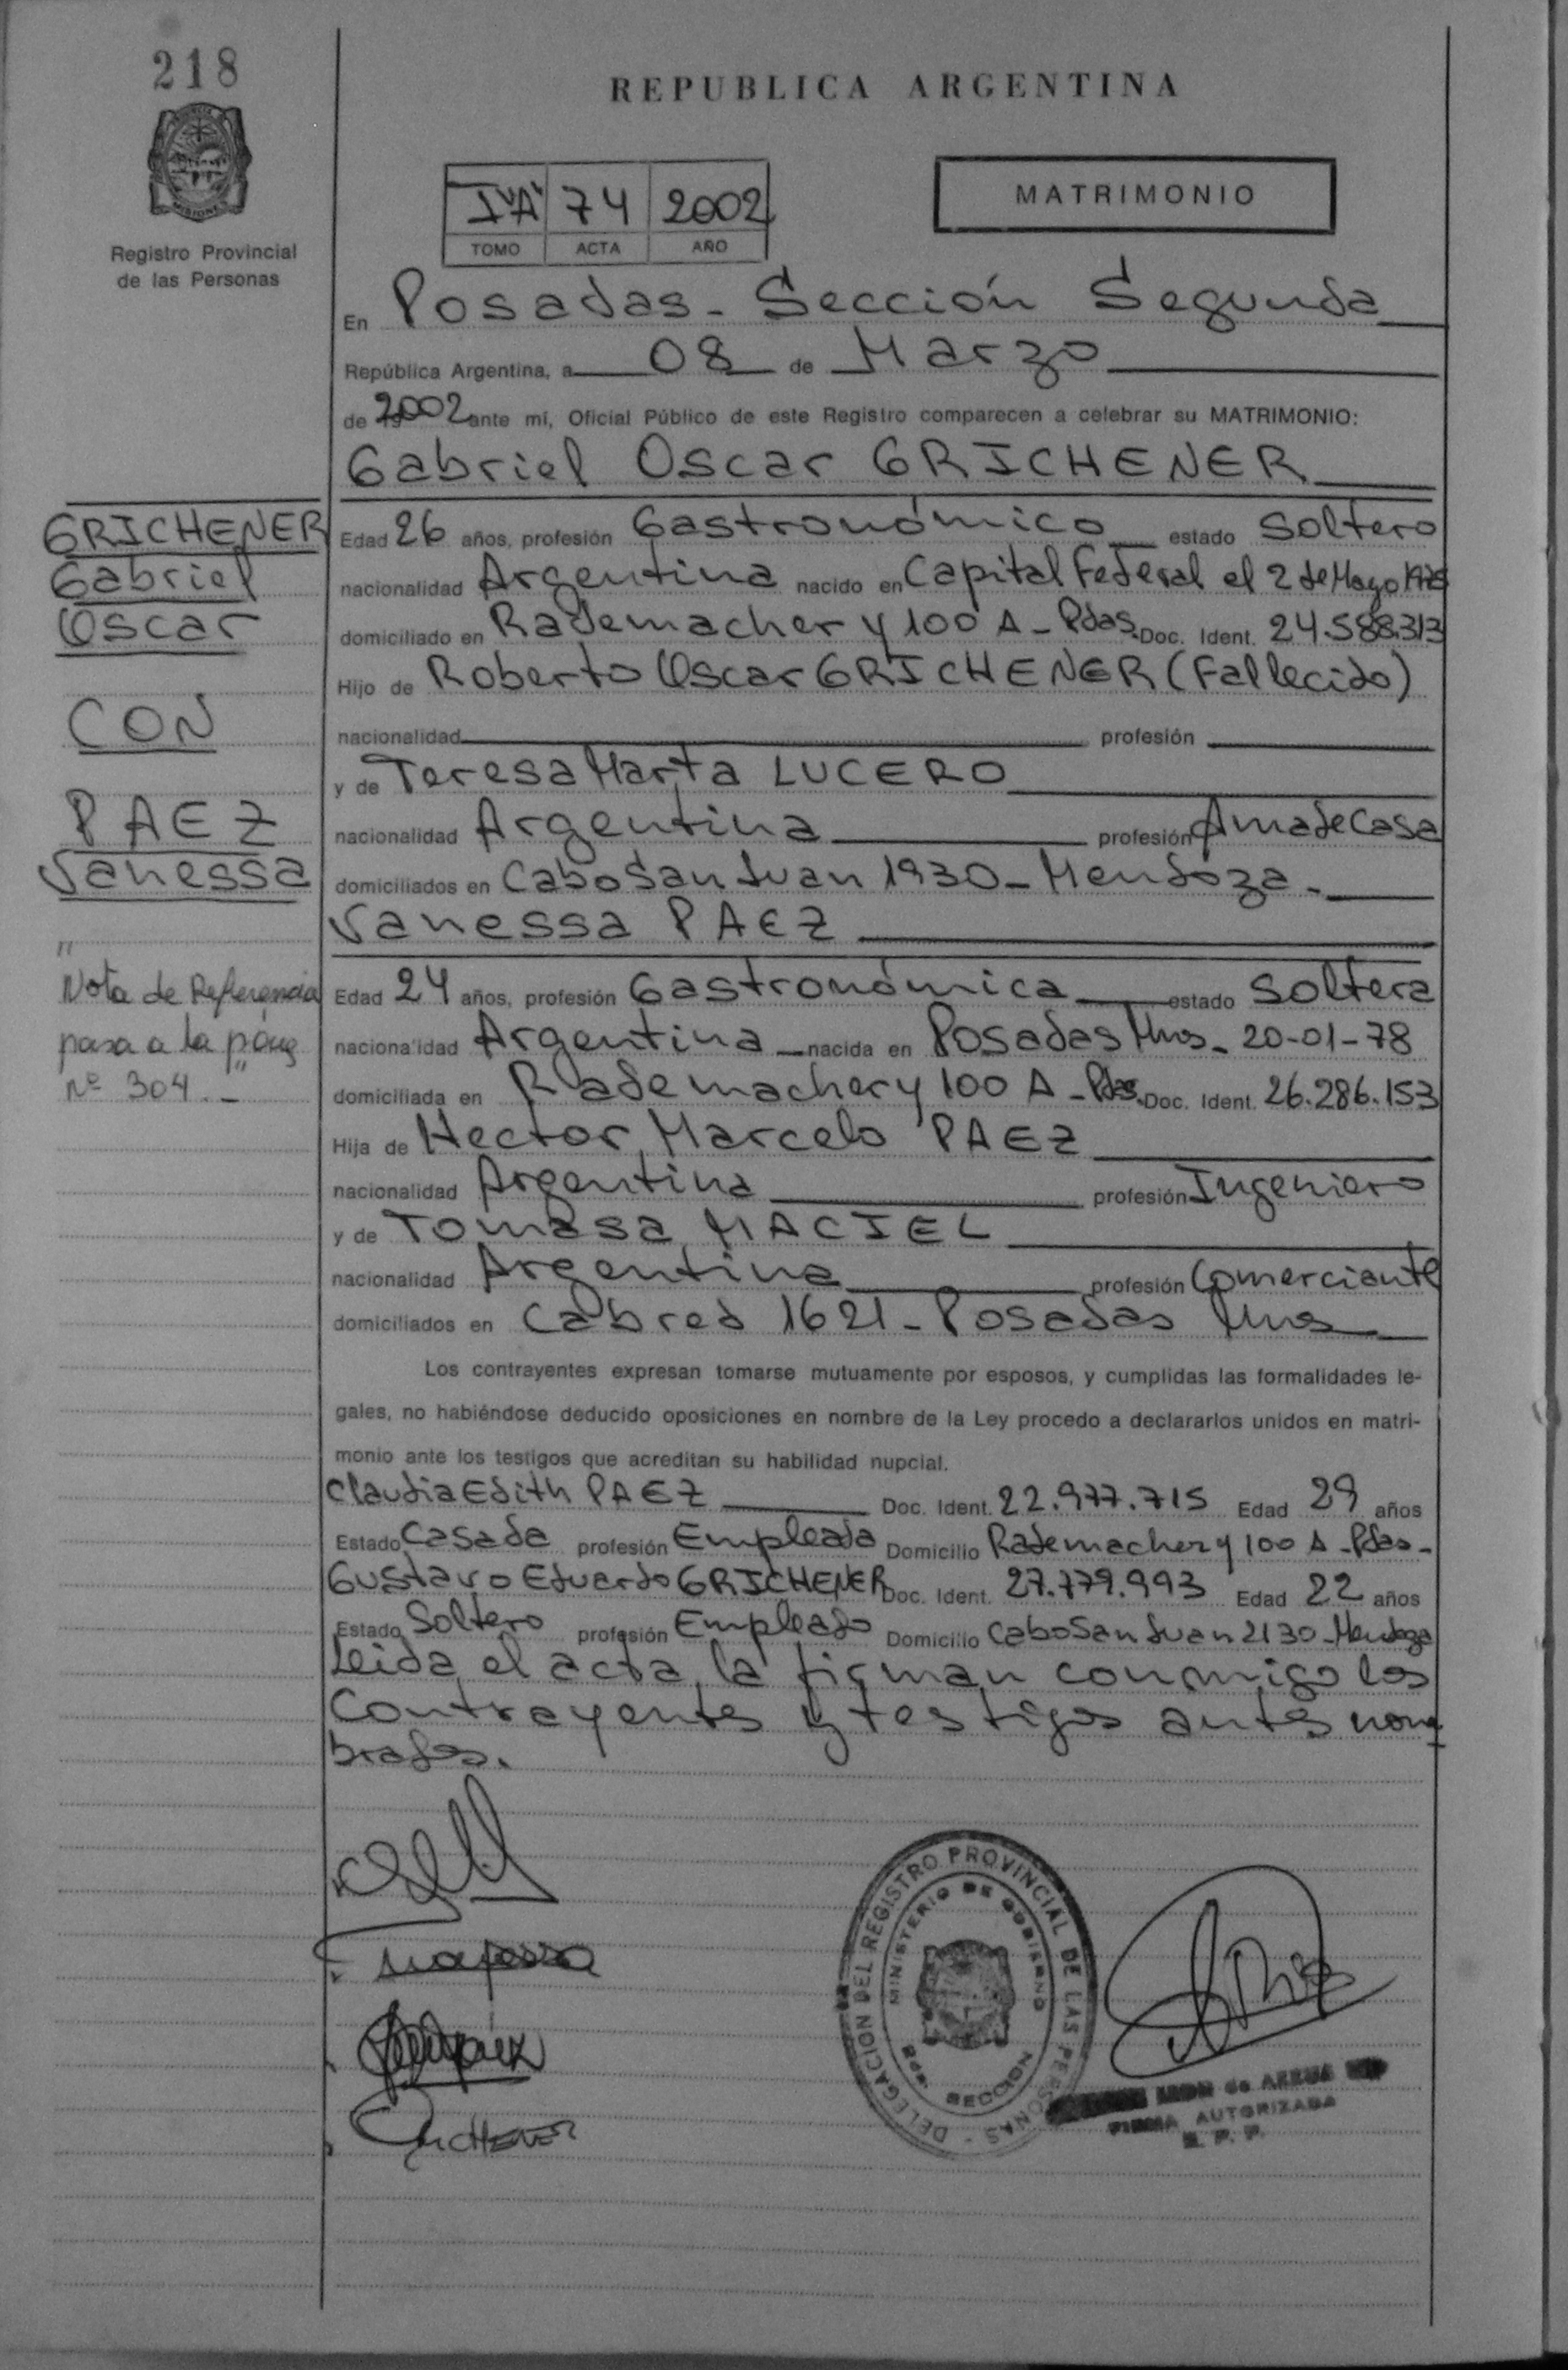 218
REPUBLICA ARGENTINA
MISIONES
Registro Provincial
de las Personas
I"A" 74 2002
TOMO ACTA AÑO
MATRIMONIO
En Posadas - Sección Segunda
República Argentina, a 08 de Marzo
de 2002 ante mí, Oficial Público de este Registro comparecen a celebrar su MATRIMONIO:
Gabriel Oscar GRICHENER
GRICHENER
Gabriel
Oscar
CON
PAEZ
Vanessa
"Nota de Referencia
pasa a la pág
Nº 304.-"
Edad 26 años, profesión Gastronómico estado Soltero
nacionalidad Argentina nacido en Capital Federal el 2 de Mayo 1975
domiciliado en Rademacher y 100 A - Pdas. Doc. Ident. 24.588.313
Hijo de Roberto Oscar GRICHENER (Fallecido)
nacionalidad profesión
y de Teresa Marta LUCERO
nacionalidad Argentina profesión Ama de Casa
domiciliados en Cabo San Juan 1930 - Mendoza.
Vanessa PAEZ
Edad 24 años, profesión Gastronómica estado Soltera
nacionalidad Argentina nacida en Posadas Mns - 20-01-78
domiciliada en Rademacher y 100 A - Pdas. Doc. Ident. 26.286.153
Hija de Hector Marcelo PAEZ
nacionalidad Argentina profesión Ingeniero
y de Tomasa MACIEL
nacionalidad Argentina profesión Comerciante
domiciliados en Cabred 1621 - Posadas Mns
Los contrayentes expresan tomarse mutuamente por esposos, y cumplidas las formalidades le-
gales, no habiéndose deducido oposiciones en nombre de la Ley procedo a declararlos unidos en matri-
monio ante los testigos que acreditan su habilidad nupcial.
Claudia Edith PAEZ Doc. Ident. 22.977.715 Edad 29 años
Estado Casada profesión Empleada Domicilio Rademacher y 100 A - Pdas -
Gustavo Eduardo GRICHENER Doc. Ident. 27.779.993 Edad 22 años
Estado Soltero profesión Empleado Domicilio Cabo San Juan 2130 - Mendoza
Leida el acta, la firman conmigo los
Contrayentes y testigos antes nom
brados.
DELEGACION DEL REGISTRO PROVINCIAL DE LAS PERSONAS
MINISTERIO DE GOBIERNO
SECCION
GRICHENER
LEON de
FIRMA AUTORIZADA
R. P. P.